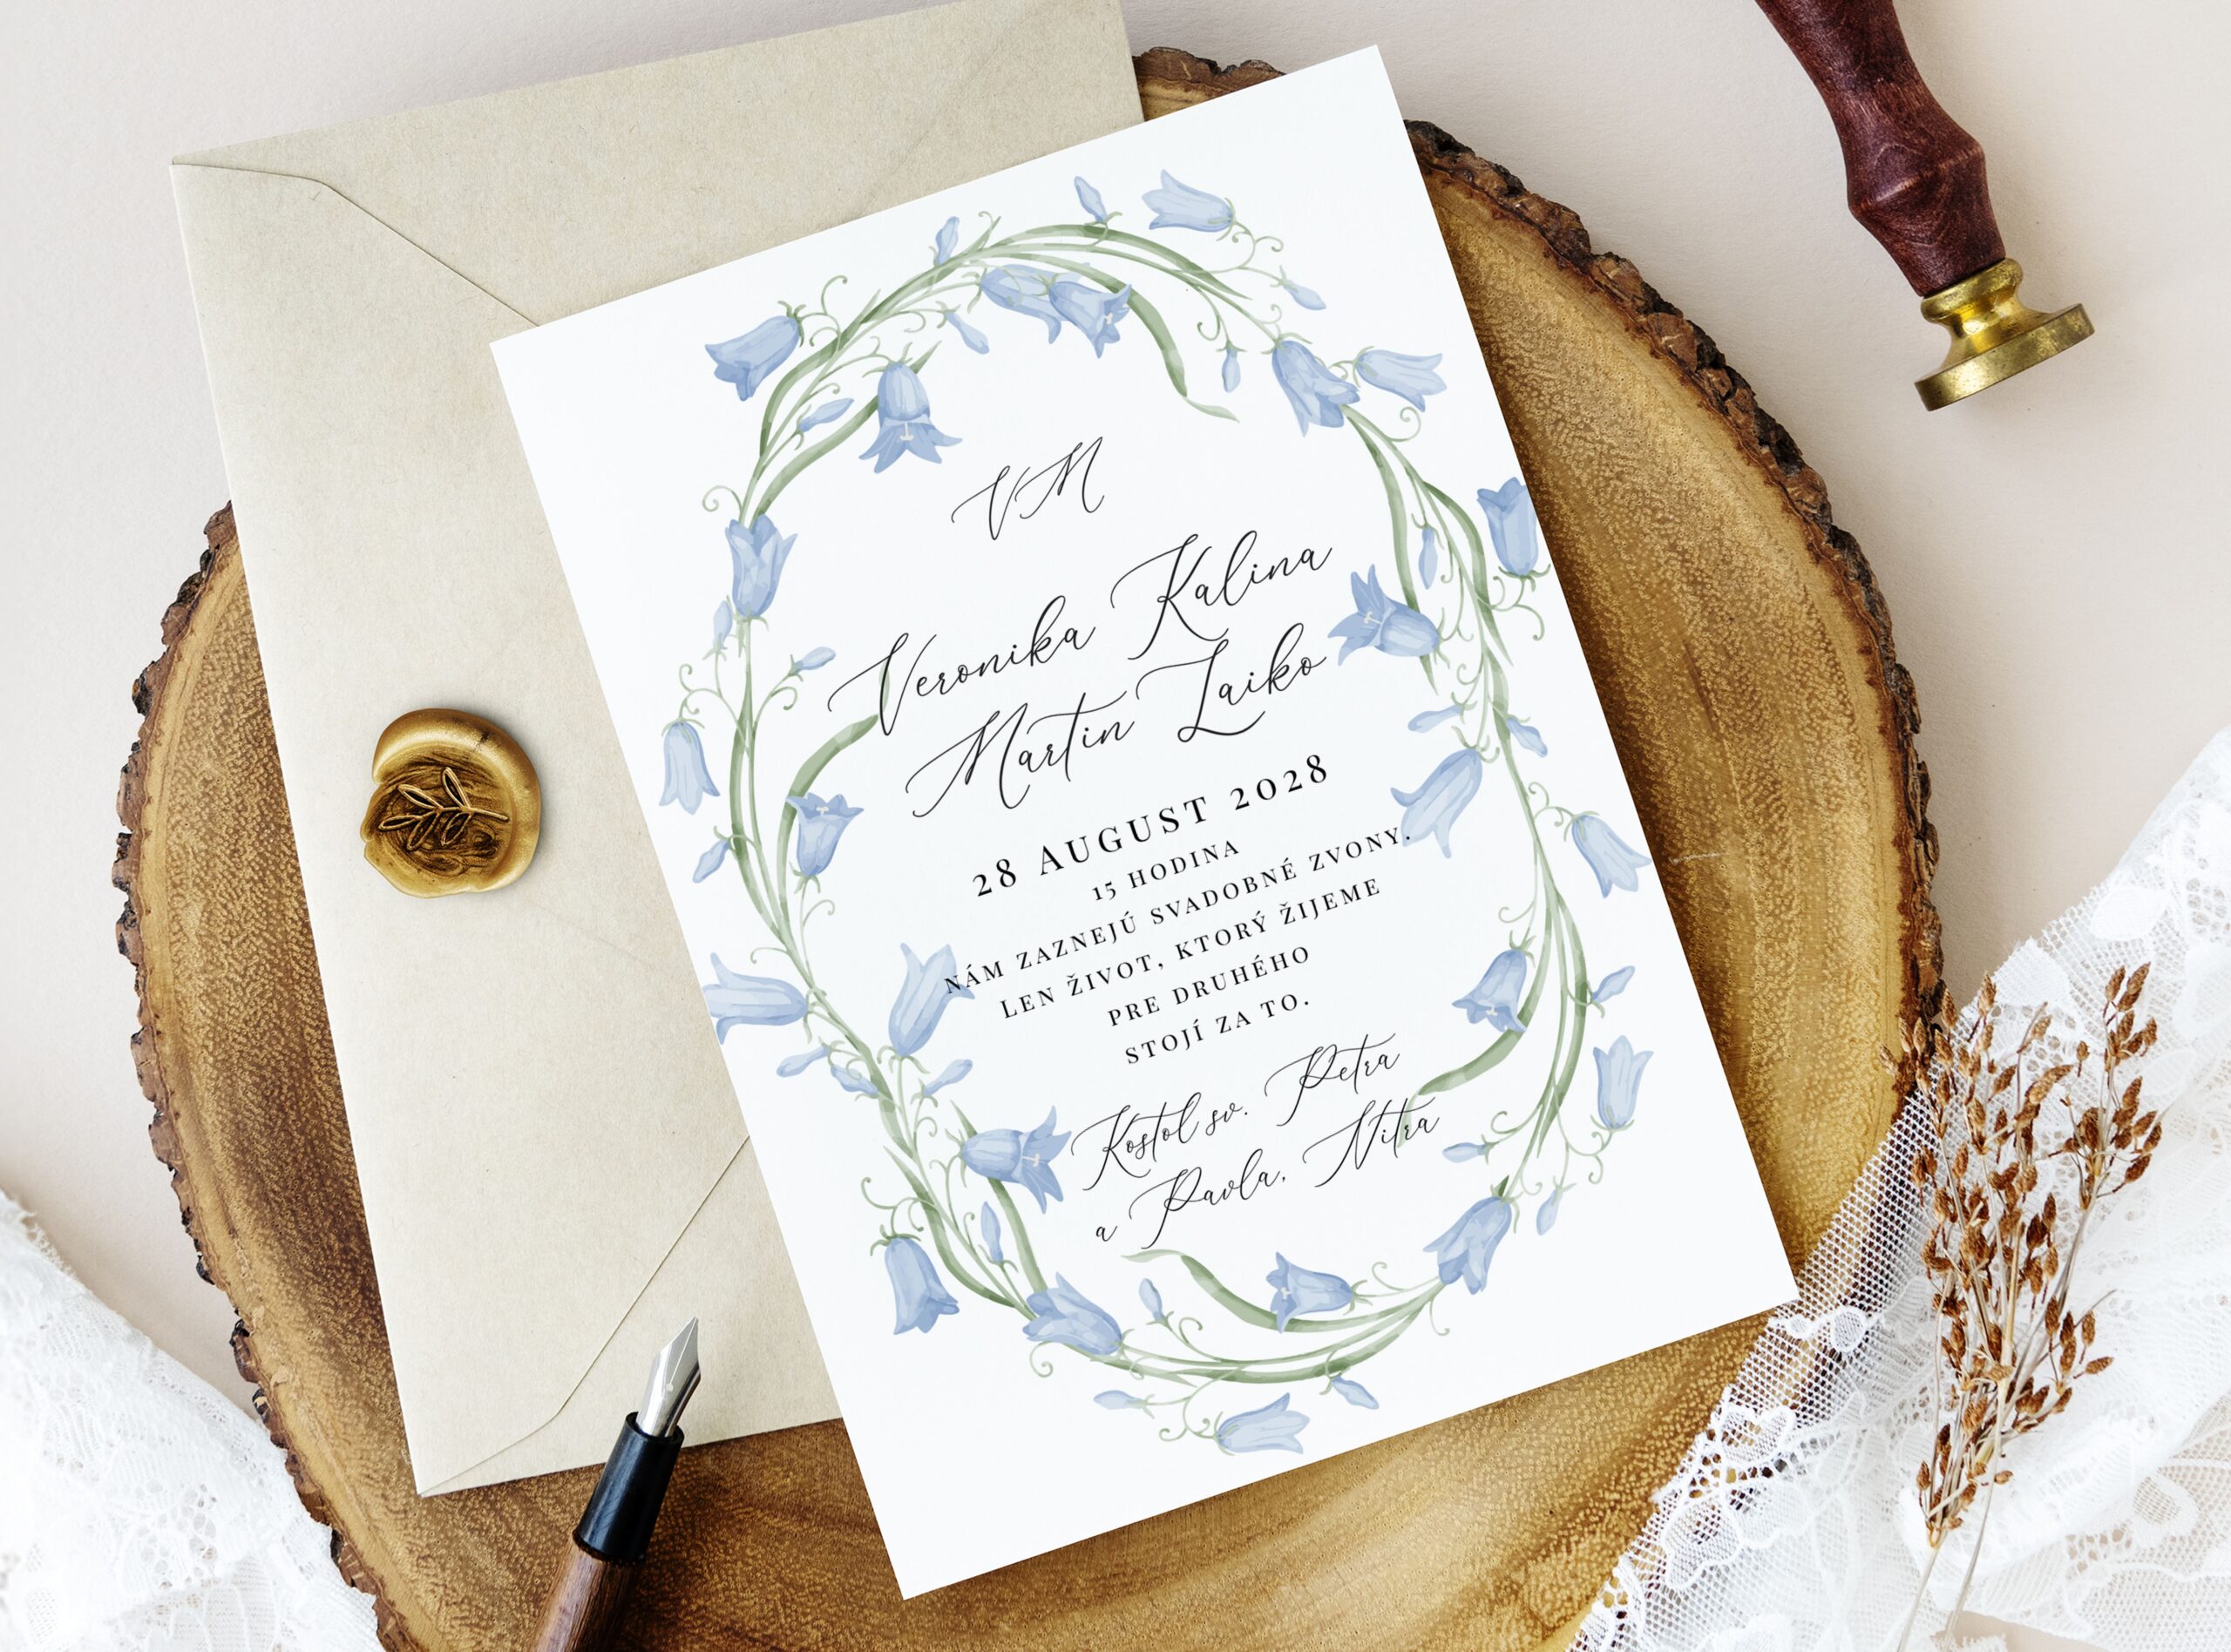 VM
Veronika Kalina
Martin Laiko
28 AUGUST 2028
15 HODINA
NÁM ZAZNEJÚ SVADOBNÉ ZVONY.
LEN ŽIVOT, KTORÝ ŽIJEME
PRE DRUHÉHO
STOJÍ ZA TO.
Kostol sv. Petra
a Pavla, Nitra